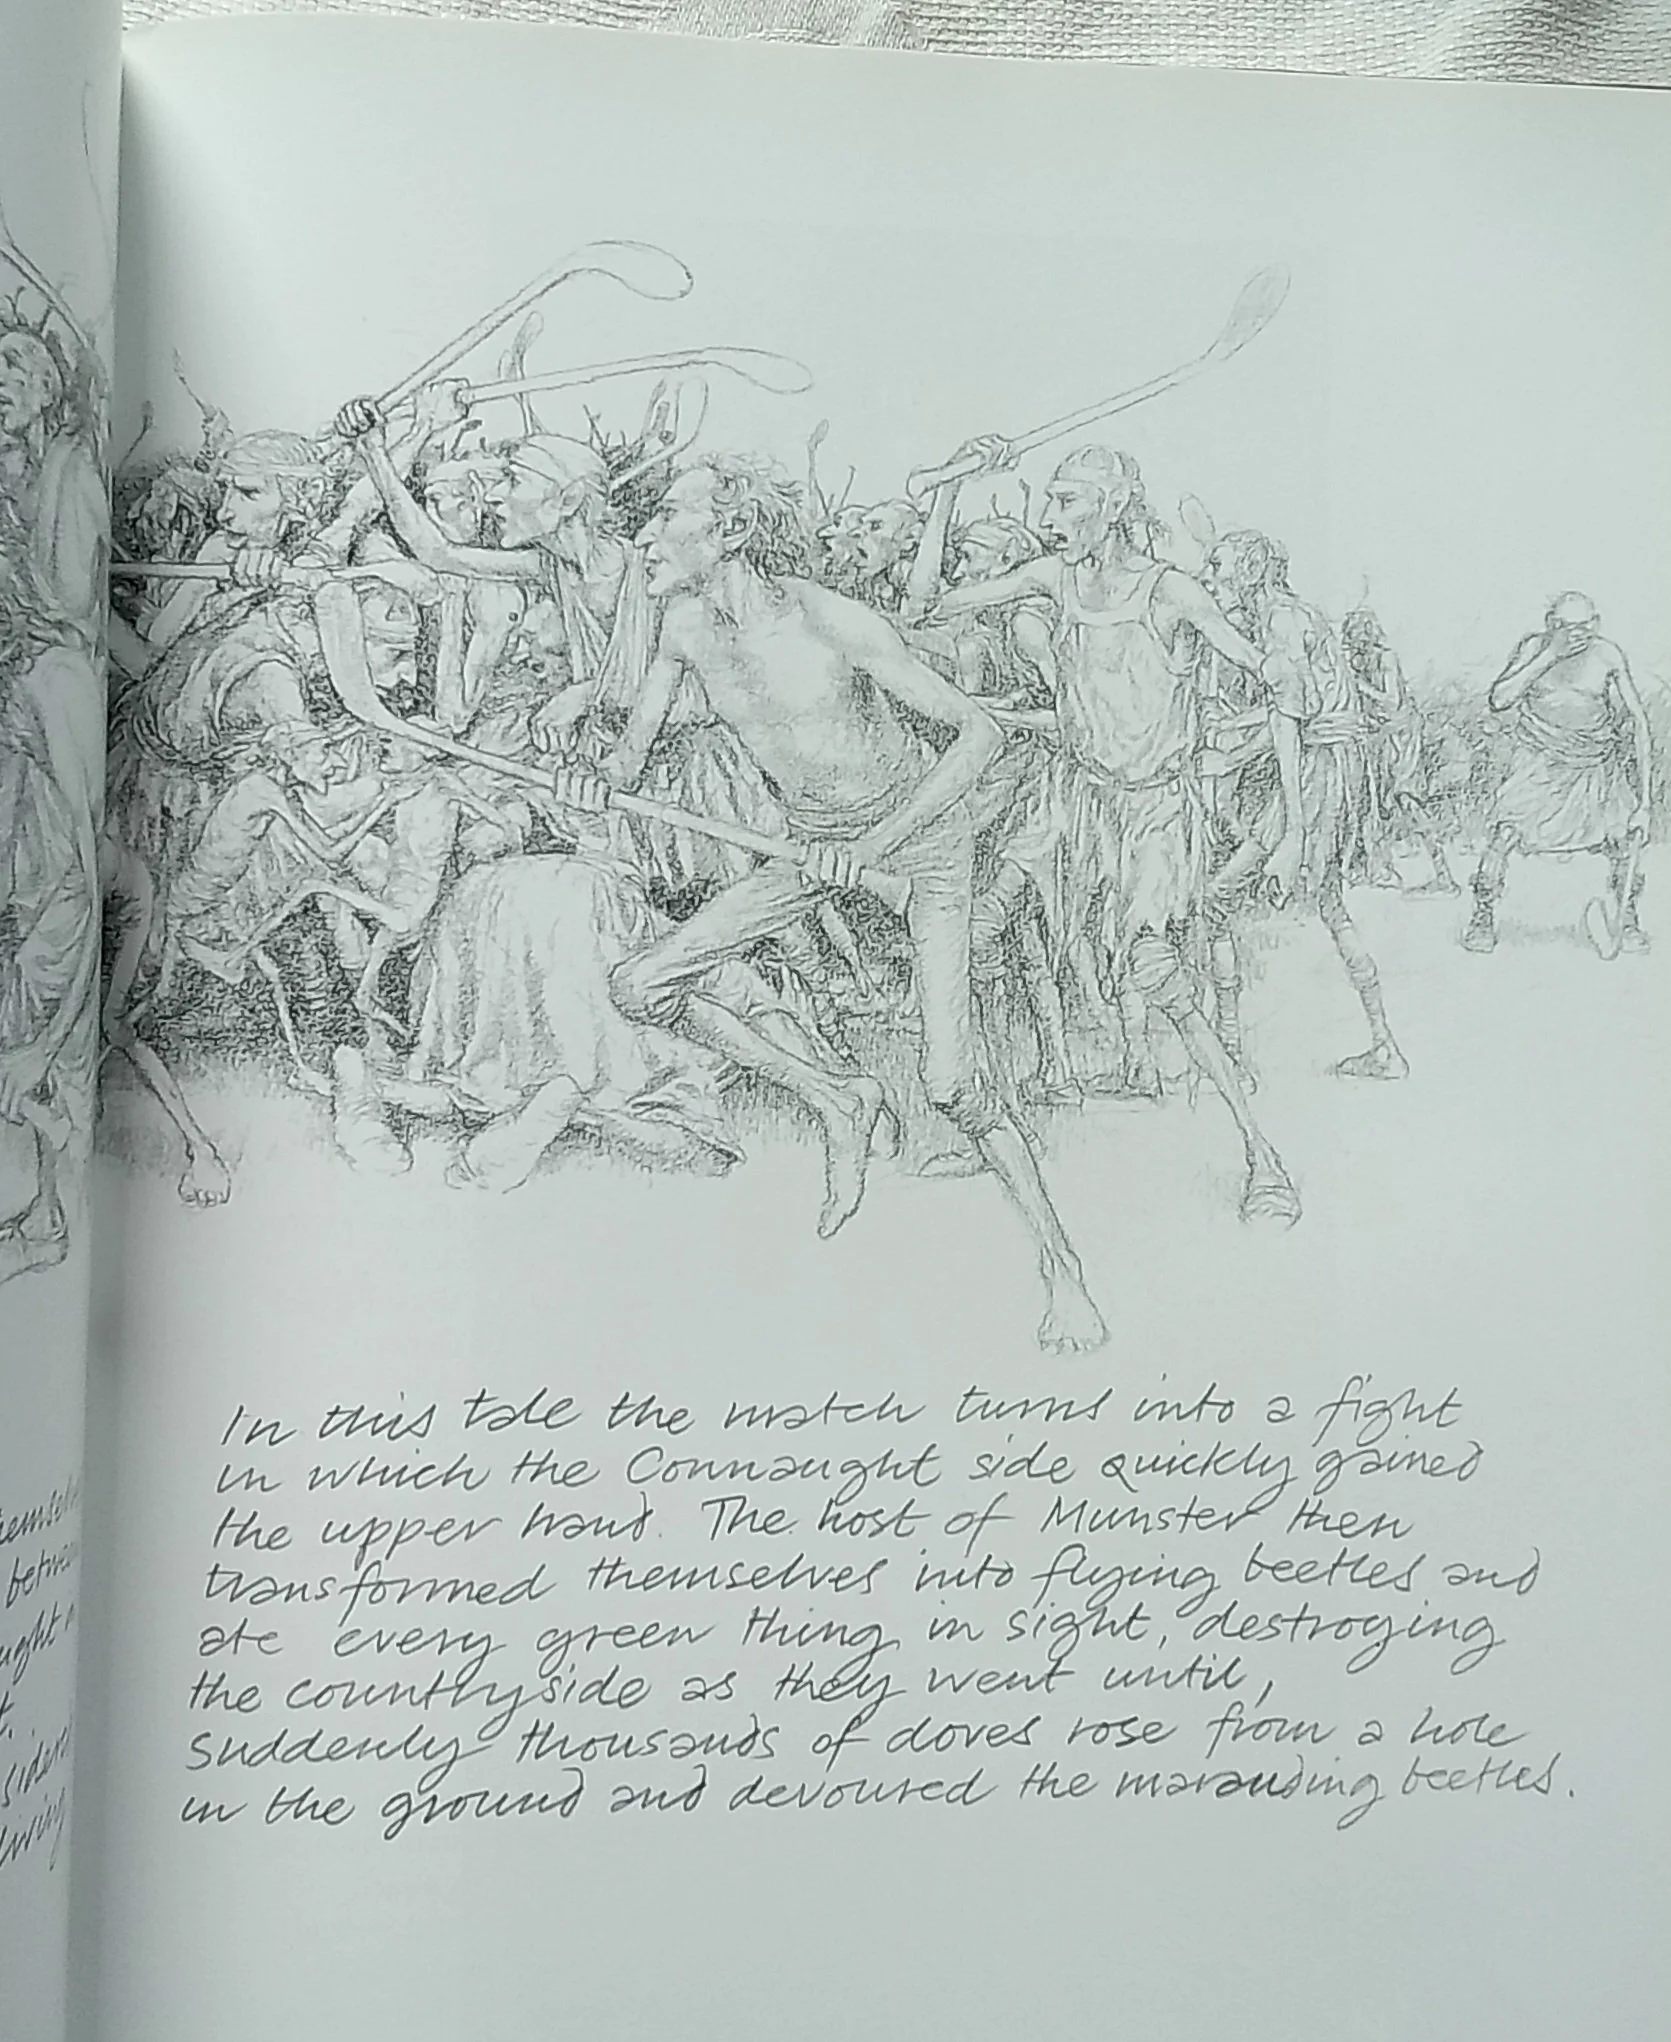 In this tale the match turns into a fight
in which the Connaught side quickly gained
the upper hand. The host of Munster then
transformed themselves into flying beetles and
ate every green thing in sight, destroying
the countryside as they went until,
suddenly thousands of doves rose from a hole
in the ground and devoured the marauding beetles.